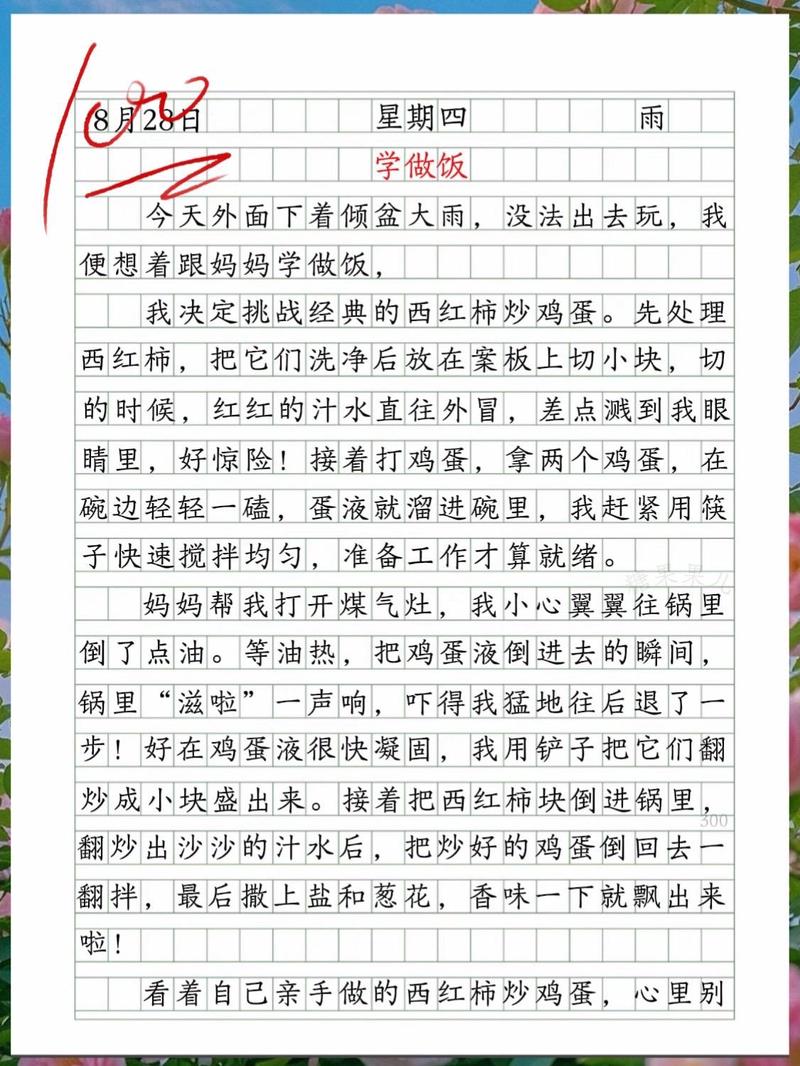 100
8月28日 星期四 雨
学做饭
今天外面下着倾盆大雨，没法出去玩，我
便想着跟妈妈学做饭，
我决定挑战经典的西红柿炒鸡蛋。先处理
西红柿，把它们洗净后放在案板上切小块，切
的时候，红红的汁水直往外冒，差点溅到我眼
睛里，好惊险！接着打鸡蛋，拿两个鸡蛋，在
碗边轻轻一磕，蛋液就溜进碗里，我赶紧用筷
子快速搅拌均匀，准备工作才算就绪。
妈妈帮我打开煤气灶，我小心翼翼往锅里
倒了点油。等油热，把鸡蛋液倒进去的瞬间，
锅里“滋啦”一声响，吓得我猛地往后退了一
步！好在鸡蛋液很快凝固，我用铲子把它们翻
炒成小块盛出来。接着把西红柿块倒进锅里，
300
翻炒出沙沙的汁水后，把炒好的鸡蛋倒回去一
翻拌，最后撒上盐和葱花，香味一下就飘出来
啦！
看着自己亲手做的西红柿炒鸡蛋，心里别